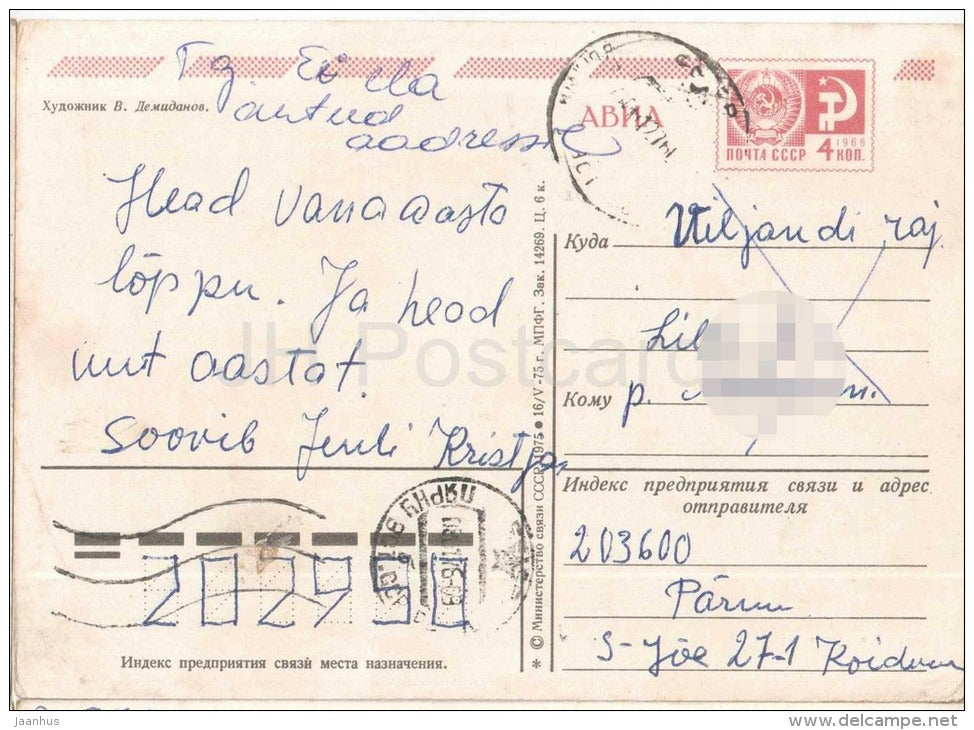 Tg. Ei ela
antud
aadressil
Художник В. Демиданов.
АВИА
ПОЧТА СССР 4 КОП.
1966
Head vana aasta
lõppu. Ja head
uut aastat.
Soovib Juuli Kristjan
Куда Viljandi raj.
Lil
Кому p. n.
Индекс предприятия связи и адрес
отправителя
203600
Pärnu
S-Jõe 27-1
202900
Индекс предприятия связи места назначения.
* © Министерство связи СССР. 1975 ● 16/V-75 г. МПФГ. Зак. 14269. Ц. 6 к.
ПЯРНУ
JH Postcards
jaanhus
www.delcampe.net